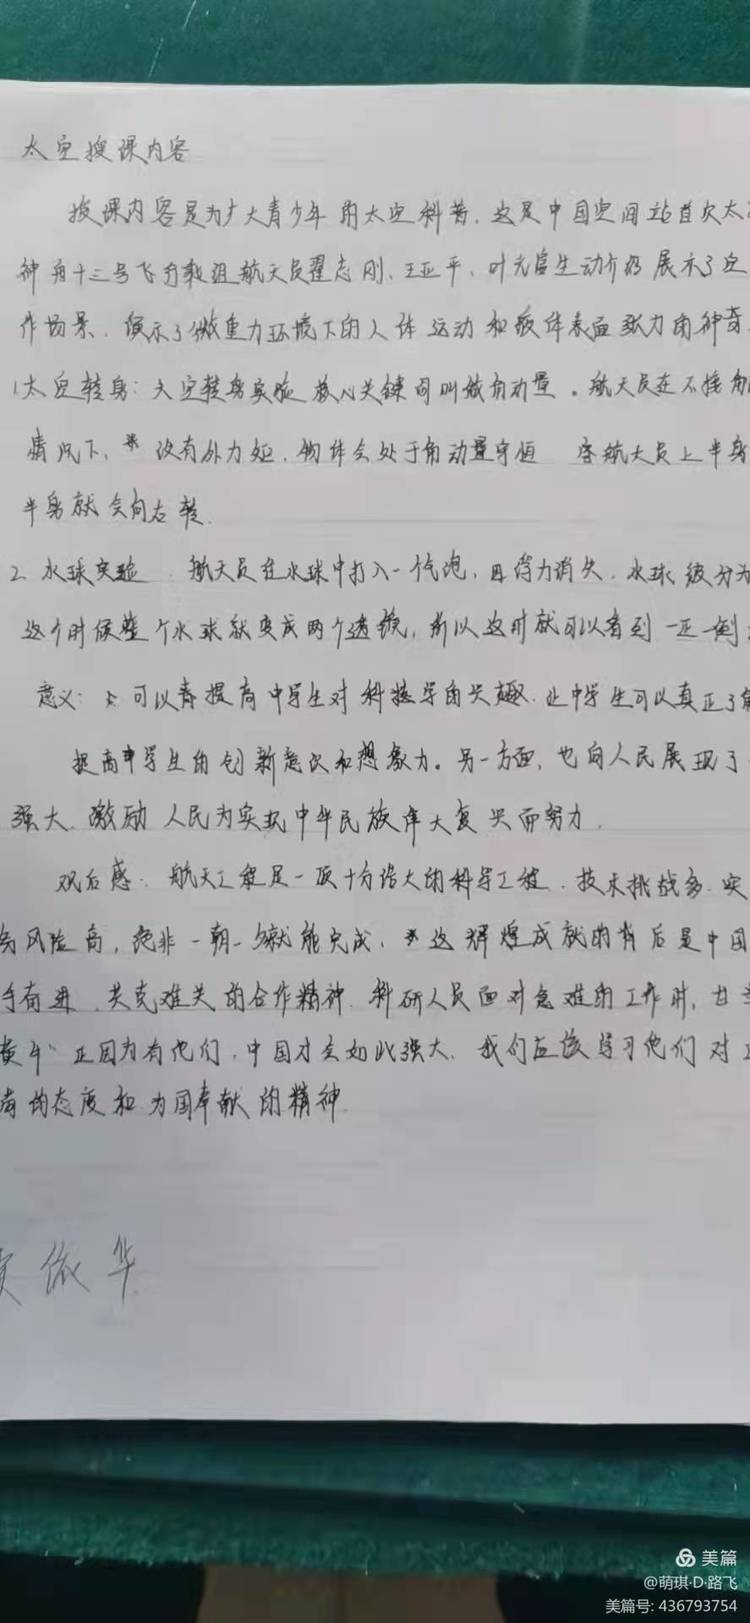 太空授课内容
授课内容是为广大青少年的太空科普，这是中国空间站首次太
神舟十三号飞行乘组航天员翟志刚、王亚平、叶光富生动介绍展示了空
作场景，演示了微重力环境下的人体运动和液体表面张力的神奇
1太空转身：太空转身实验核心关键词叫做角动量。航天员在不接触
情况下，没有外力矩，物体会处于角动量守恒 當航天员上半身
半身就会向右转．
2．水球实验 航天员在水球中打入一个气泡，且浮力消失．水球被分为
这个时候整个水球就变成两个透镜，所以这时就可以看到一正一倒
意义：可以提高中学生对科技学的兴趣．让中学生可以真正了解
提高中学生的创新意识和想象力。另一方面，也向人民展现了
强大．激励人民为实现中华民族伟大复兴而努力．
观后感．航天工程是一项十分浩大的科学工程．技术挑战多．实
务风险高，绝非一朝一夕就能完成，这辉煌成就的背后是中国
手奋进．共克难关的合作精神．科研人员面对急难的工作时，甘当
黄牛”正因为有他们，中国才会如此强大．我们应该学习他们对工
的态度和为国奉献的精神．
依华
美篇
@萌琪·D·路飞
美篇号: 436793754